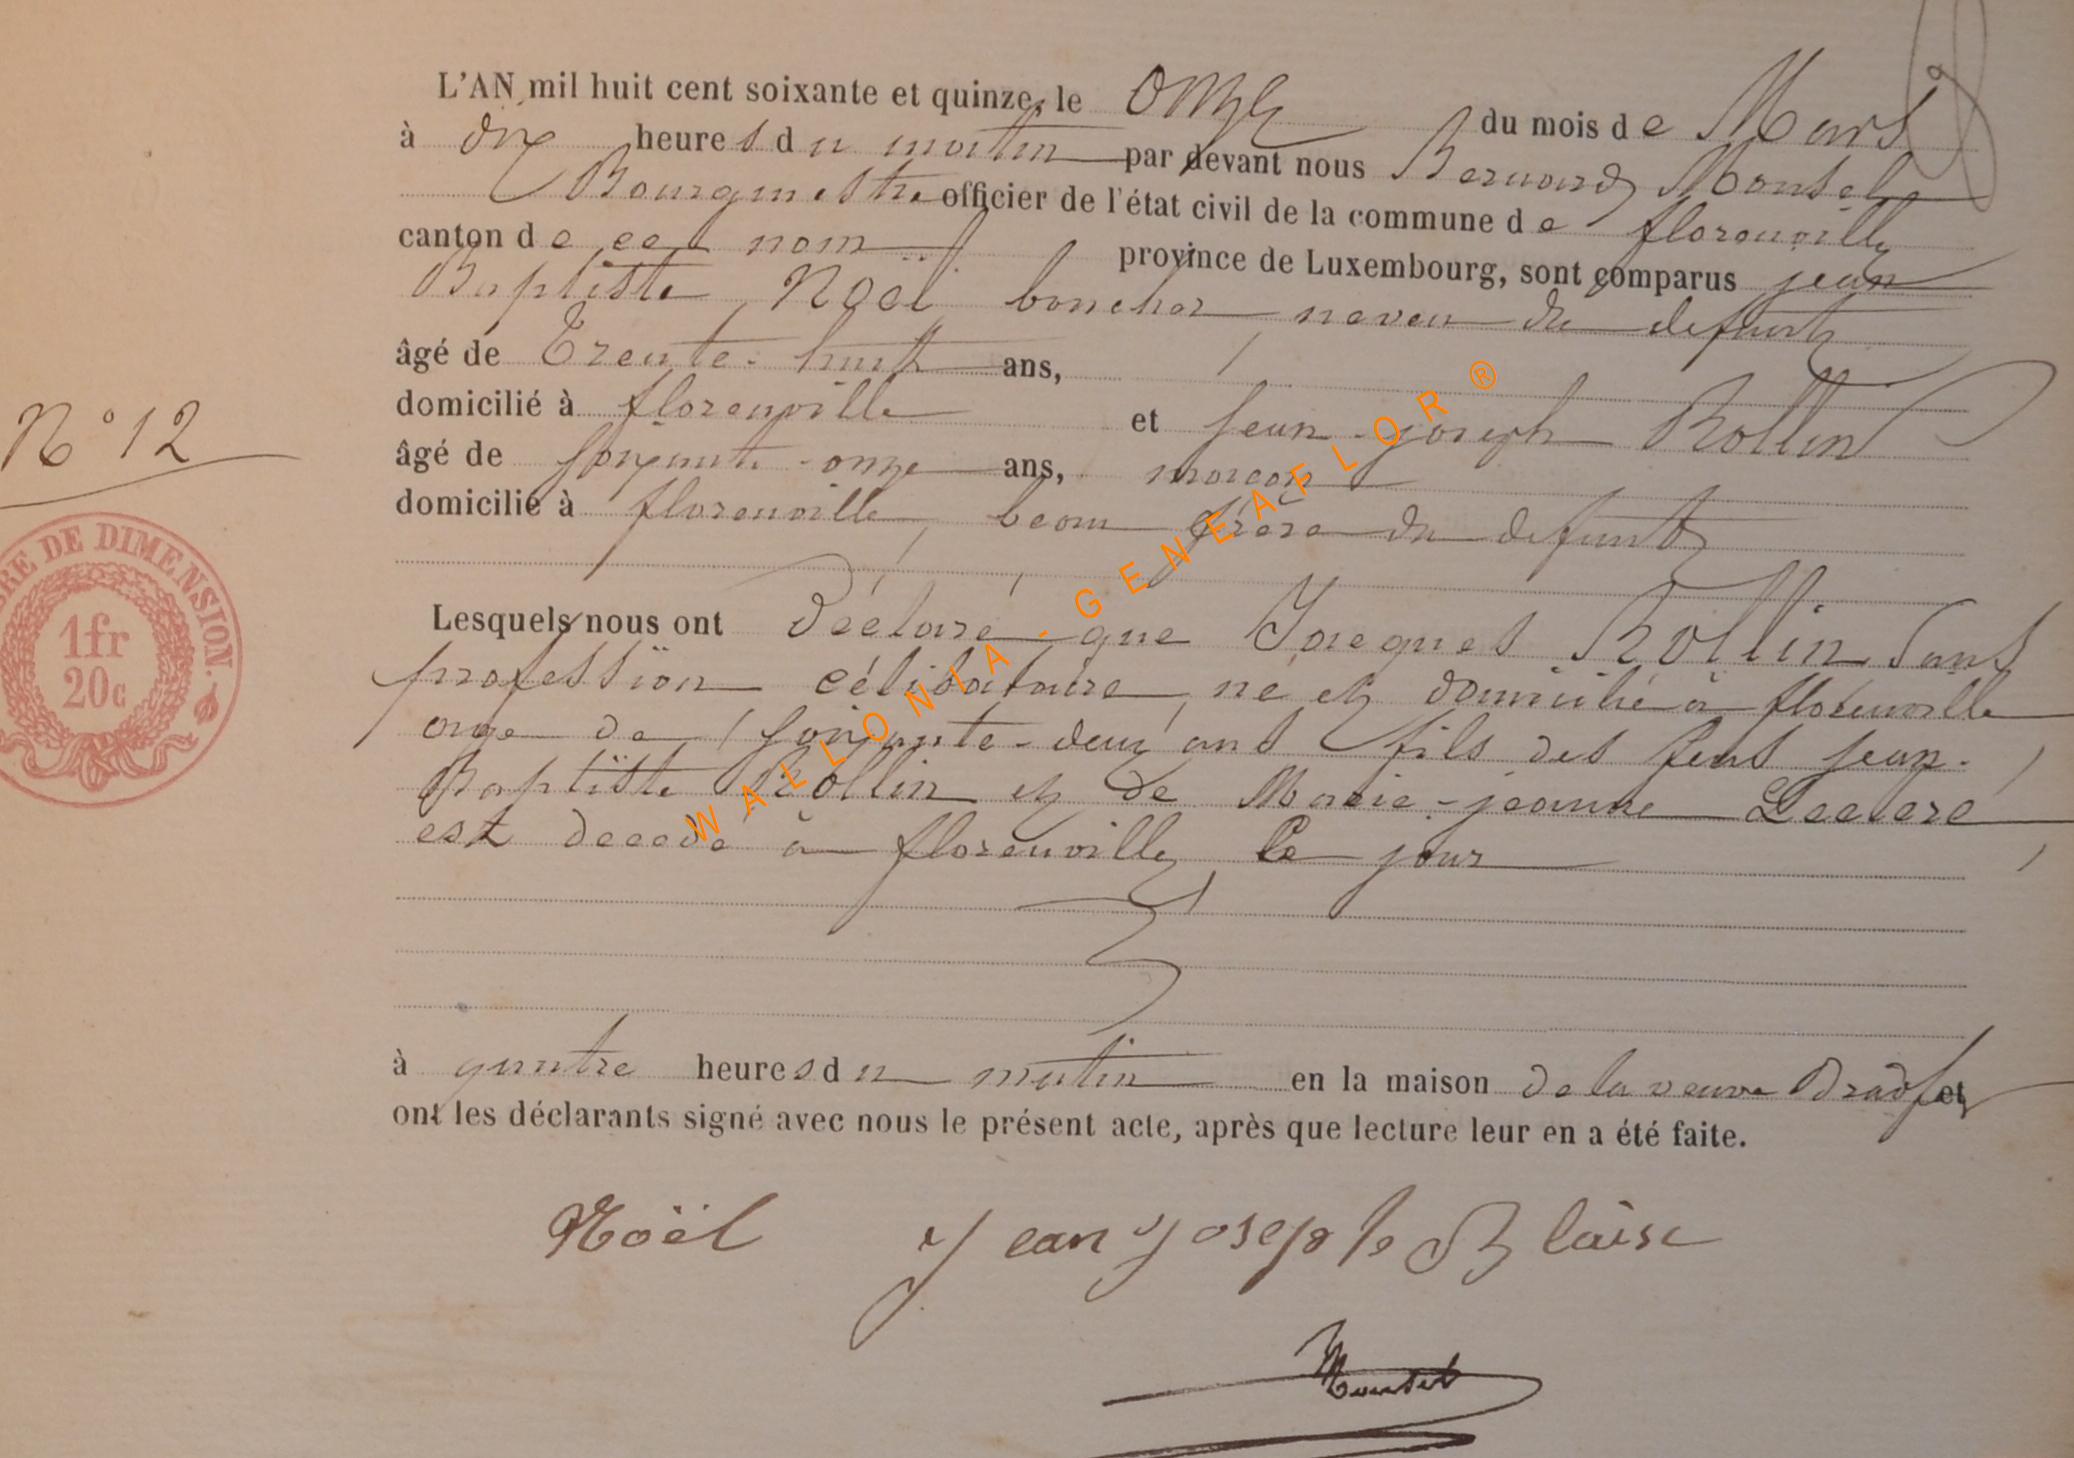 L'AN mil huit cent soixante et quinze, le onze du mois de Mars
à dix heures du matin par devant nous Bernard Monsel
Bourgmestre officier de l'état civil de la commune de florenville
canton de ce nom province de Luxembourg, sont comparus jean
Baptiste Noël boucher, neveu du defunt
âgé de Trente-huit ans,
domicilié à florenville et jean-joseph Rollin
N° 12
âgé de soixante-onze ans, maçon
domicilié à florenville, beau frère du defunt
RE DE DIMENSION.
1fr
20c
Lesquels nous ont Déclaré que Jacques Rollin sans
profession célibataire, né et domicilié à florenville
age de soixante-deux ans fils des feus jean-
Baptiste Rollin et de Marie-jeanne Leclere,
est decedé à florenville, le jour
à quatre heures du matin en la maison de la veuve et
ont les déclarants signé avec nous le présent acte, après que lecture leur en a été faite.
Noël Jean Joseph Blaise
Monsel
WALLONIA.GENEAFLOR®